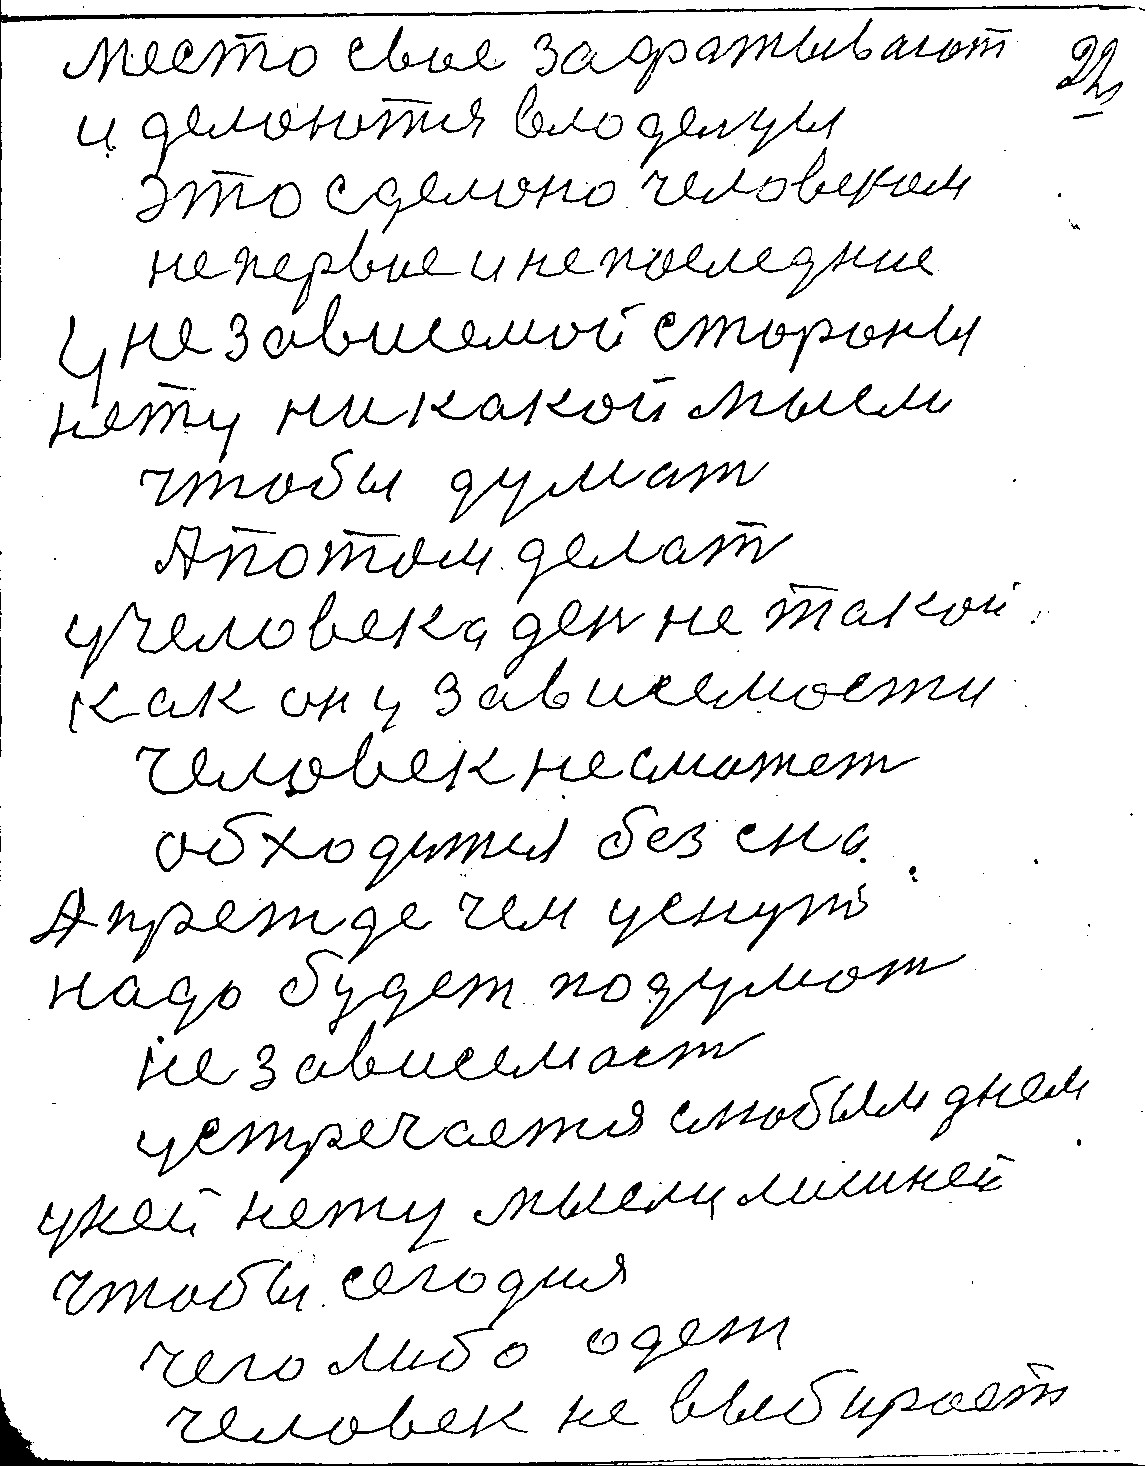 место свое захватывают 22
и делаются владельцы
это сделано человеком
не первые и не последние
у независемой стороны
нету ни какой мысли
чтобы думат
А потом делат
у человека ден не такой
как он у зависемости
человек не сможет
обходится без сна
А прежде чем уснуть
надо будет подумат
не зависемост
устречается с любым днем
у ней нету мысли лишней
чтобы сегодня
чего либо одет
человек не выбирает